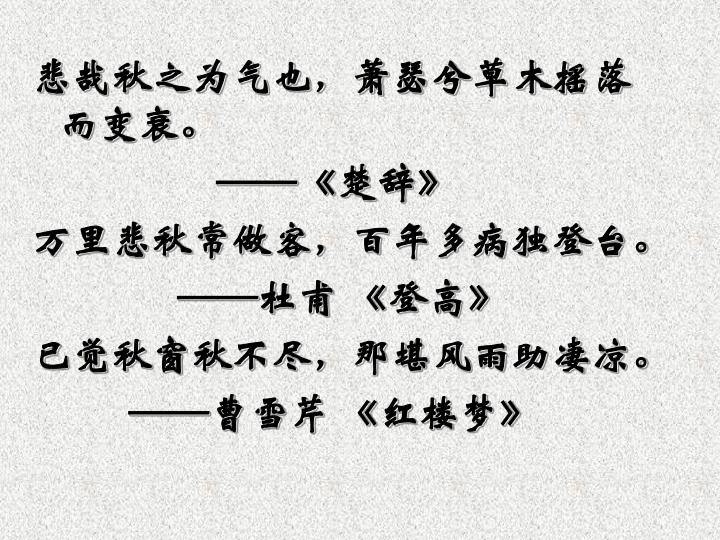 悲哉秋之为气也，萧瑟兮草木摇落
而变衰。
——《楚辞》
万里悲秋常做客，百年多病独登台。
——杜甫 《登高》
已觉秋窗秋不尽，那堪风雨助凄凉。
——曹雪芹 《红楼梦》